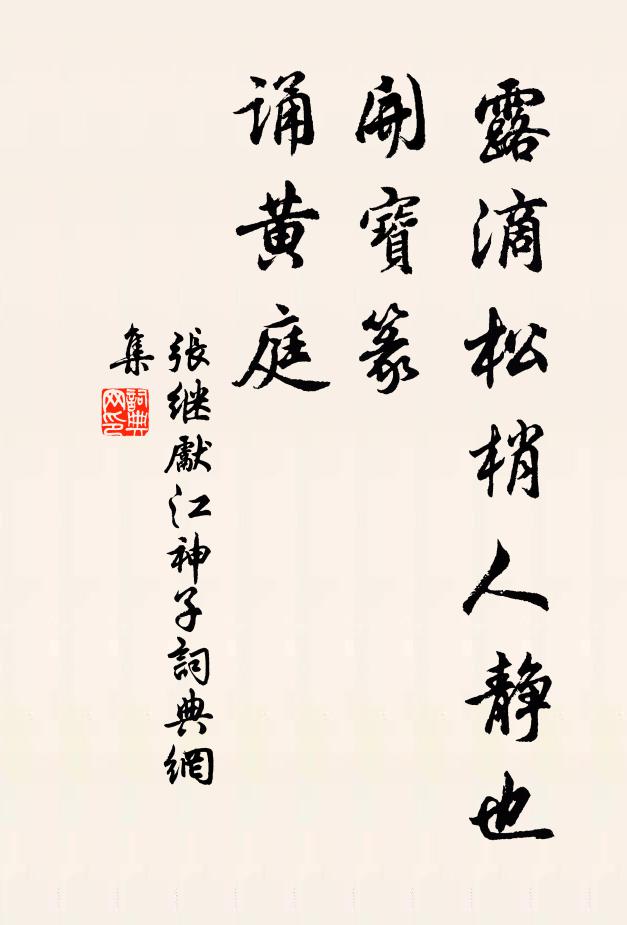 露滴松梢人静也
開寶篆
誦黄庭
張继獻江神子詞典網
集
詞典
网印